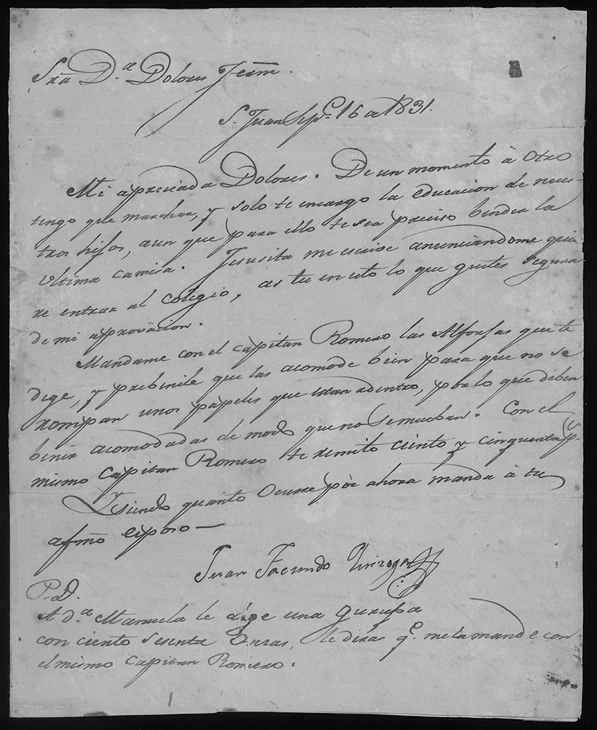 Sra Da Dolores Fernz.
Sn. Juan Sepe. 16 de 1831.
Mi apreciada Dolores. De un momento á otro
tengo que marchar, y solo te encargo la educacion de nues-
tros hijos, aun que para ello te sea preciso bender la
ultima camisa. Jesusita me escrive anunciandome quie
re entrar al colegio, as tu en esto lo que gustes segura
de mi aprovacion.
Mandame con el capitan Romero las Alforjas que te
dige, y prebinile que las acomode bien para que no se
rompan unos papeles que estan adentro, por lo que deben
benir acomodadas de modo que no se mueban. Con el
mismo Capitan Romero te remito ciento y cinquenta ps.
Y siendo quanto ocurre por ahora manda á tu
afmo esposo —
Juan Facundo Quiroga
P. D.
A da. Manuela le dige una Gurupa
con ciento sesenta Onzas, le dira qe. me la mande con
el mismo Capitan Romero.